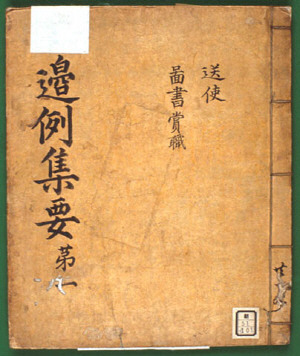 邊例集要 第一
送使
圖書賞職